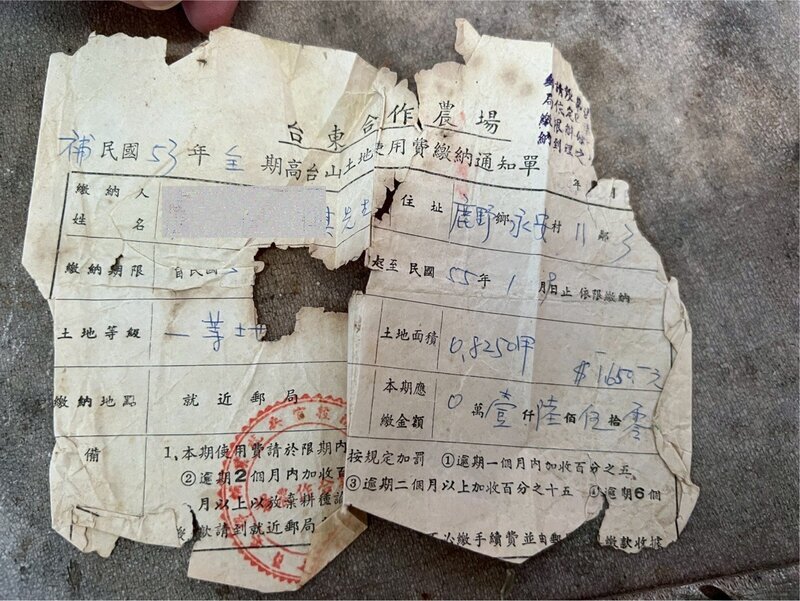 台東合作農場
補民國53年全期高台山土地使用費繳納通知單
年
繳納人姓名 先生 住址 鹿野鄉永安村11鄰3
繳納期限 自民國 起至民國55年1月 日止依限繳納
土地等級 一等 土地面積 0.8250甲
$1,650元
繳納地點 就近郵局 本期應繳金額 0萬壹仟陸佰伍拾零
備
1、本期使用費請於限期內 按規定加罰 ①逾期一個月內加收百分之五
②逾期2個月內加收百 ③逾期二個月以上加收百分之十五 ④逾期6個
月以上以放棄耕種
繳款請到就近郵局 必繳手續費並由郵 繳款收據